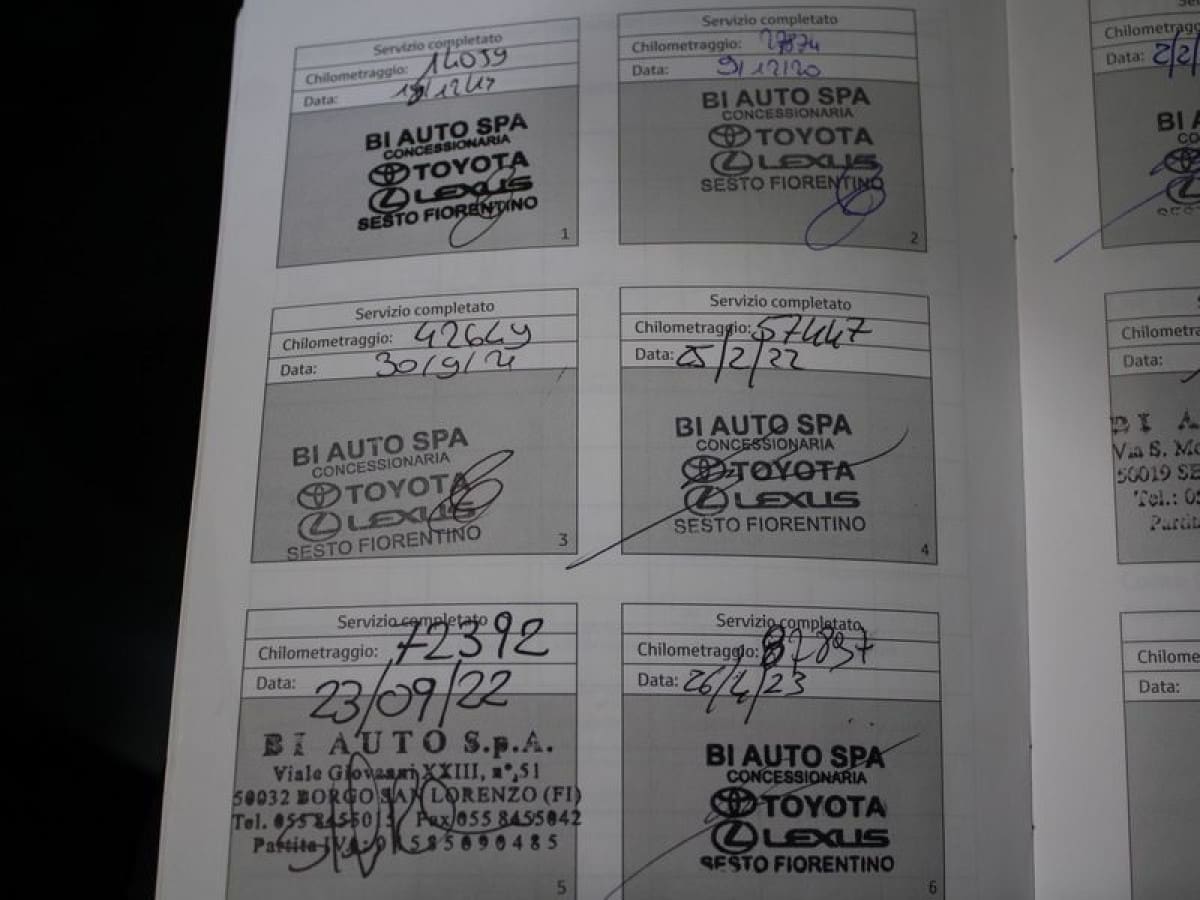 Servizio completato
Chilometraggio: 14059
Data:
BI AUTO SPA
CONCESSIONARIA
TOYOTA
LEXUS
SESTO FIORENTINO
1
Servizio completato
Chilometraggio: 27874
Data: 9/12/20
BI AUTO SPA
CONCESSIONARIA
TOYOTA
LEXUS
SESTO FIORENTINO
2
Servizio completato
Chilometraggio: 42649
Data: 30/9/21
BI AUTO SPA
CONCESSIONARIA
TOYOTA
LEXUS
SESTO FIORENTINO
3
Servizio completato
Chilometraggio: 57447
Data: 25/2/22
BI AUTO SPA
CONCESSIONARIA
TOYOTA
LEXUS
SESTO FIORENTINO
4
Servizio completato
Chilometraggio: 72392
Data: 23/09/22
BI AUTO S.p.A.
Viale Giovanni XXIII, n°,51
50032 BORGO SAN LORENZO (FI)
Tel. 055 845501 Fax 055 8455042
Partita IVA:
5
Servizio completato
Chilometraggio: 87897
Data: 26/4/23
BI AUTO SPA
CONCESSIONARIA
TOYOTA
LEXUS
SESTO FIORENTINO
6
Chilometra
Data: 2/2/
BI A
CO
Chilometra
Data:
BI A
Via S. Mo
50019 SE
Tel.: 05
Partit
Chilome
Data: